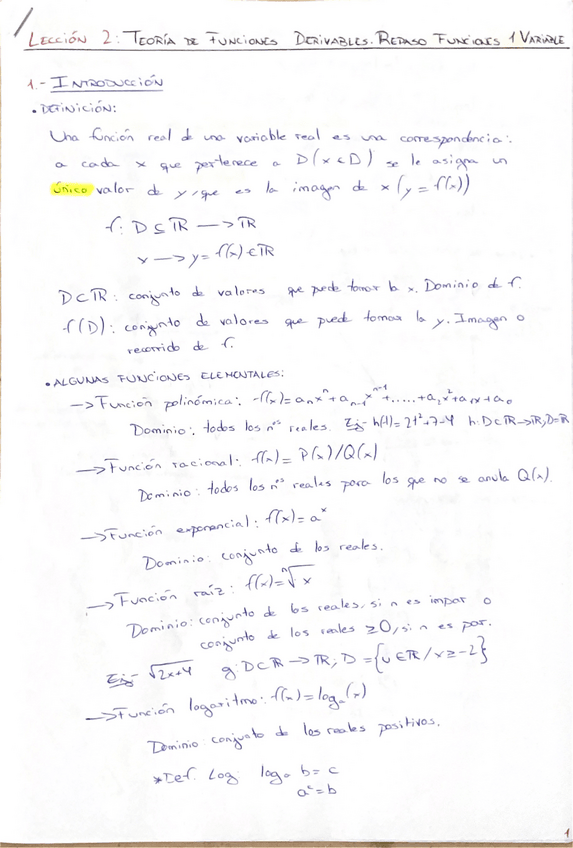 LECCIÓN 2: TEORÍA DE FUNCIONES DERIVABLES. REPASO FUNCIONES 1 VARIABLE
1.- INTRODUCCIÓN
• DEFINICIÓN:
Una función real de una variable real es una correspondencia:
a cada x que pertenece a D (x ∈ D) se le asigna un
único valor de y, que es la imagen de x (y = f(x))
f: D ⊆ ℝ → ℝ
x → y = f(x) ∈ ℝ
D ⊂ ℝ : conjunto de valores que puede tomar la x. Dominio de f.
f(D): conjunto de valores que puede tomar la y. Imagen o
recorrido de f.
• ALGUNAS FUNCIONES ELEMENTALES:
→ Función polinómica: f(x) = aₙxⁿ + aₙ₋₁xⁿ⁻¹ + ..... + a₂x² + a₁x + a₀
Dominio: todos los nºs reales. Ej: h(t) = 2t² + 7 - 4 h: D ⊂ ℝ → ℝ, D = ℝ
→ Función racional: f(x) = P(x)/Q(x)
Dominio: todos los nºs reales para los que no se anula Q(x).
→ Función exponencial: f(x) = aˣ
Dominio: conjunto de los reales.
→ Función raíz: f(x) = ⁿ√x
Dominio: conjunto de los reales, si n es impar o
conjunto de los reales ≥ 0, si n es par.
Ej: √2x+4 g: D ⊂ ℝ → ℝ, D = {v ∈ ℝ / x ≥ -2}
→ Función logaritmo: f(x) = logₐ(x)
Dominio: conjunto de los reales positivos.
* Def. Log: logₐ b = c
aᶜ = b
1